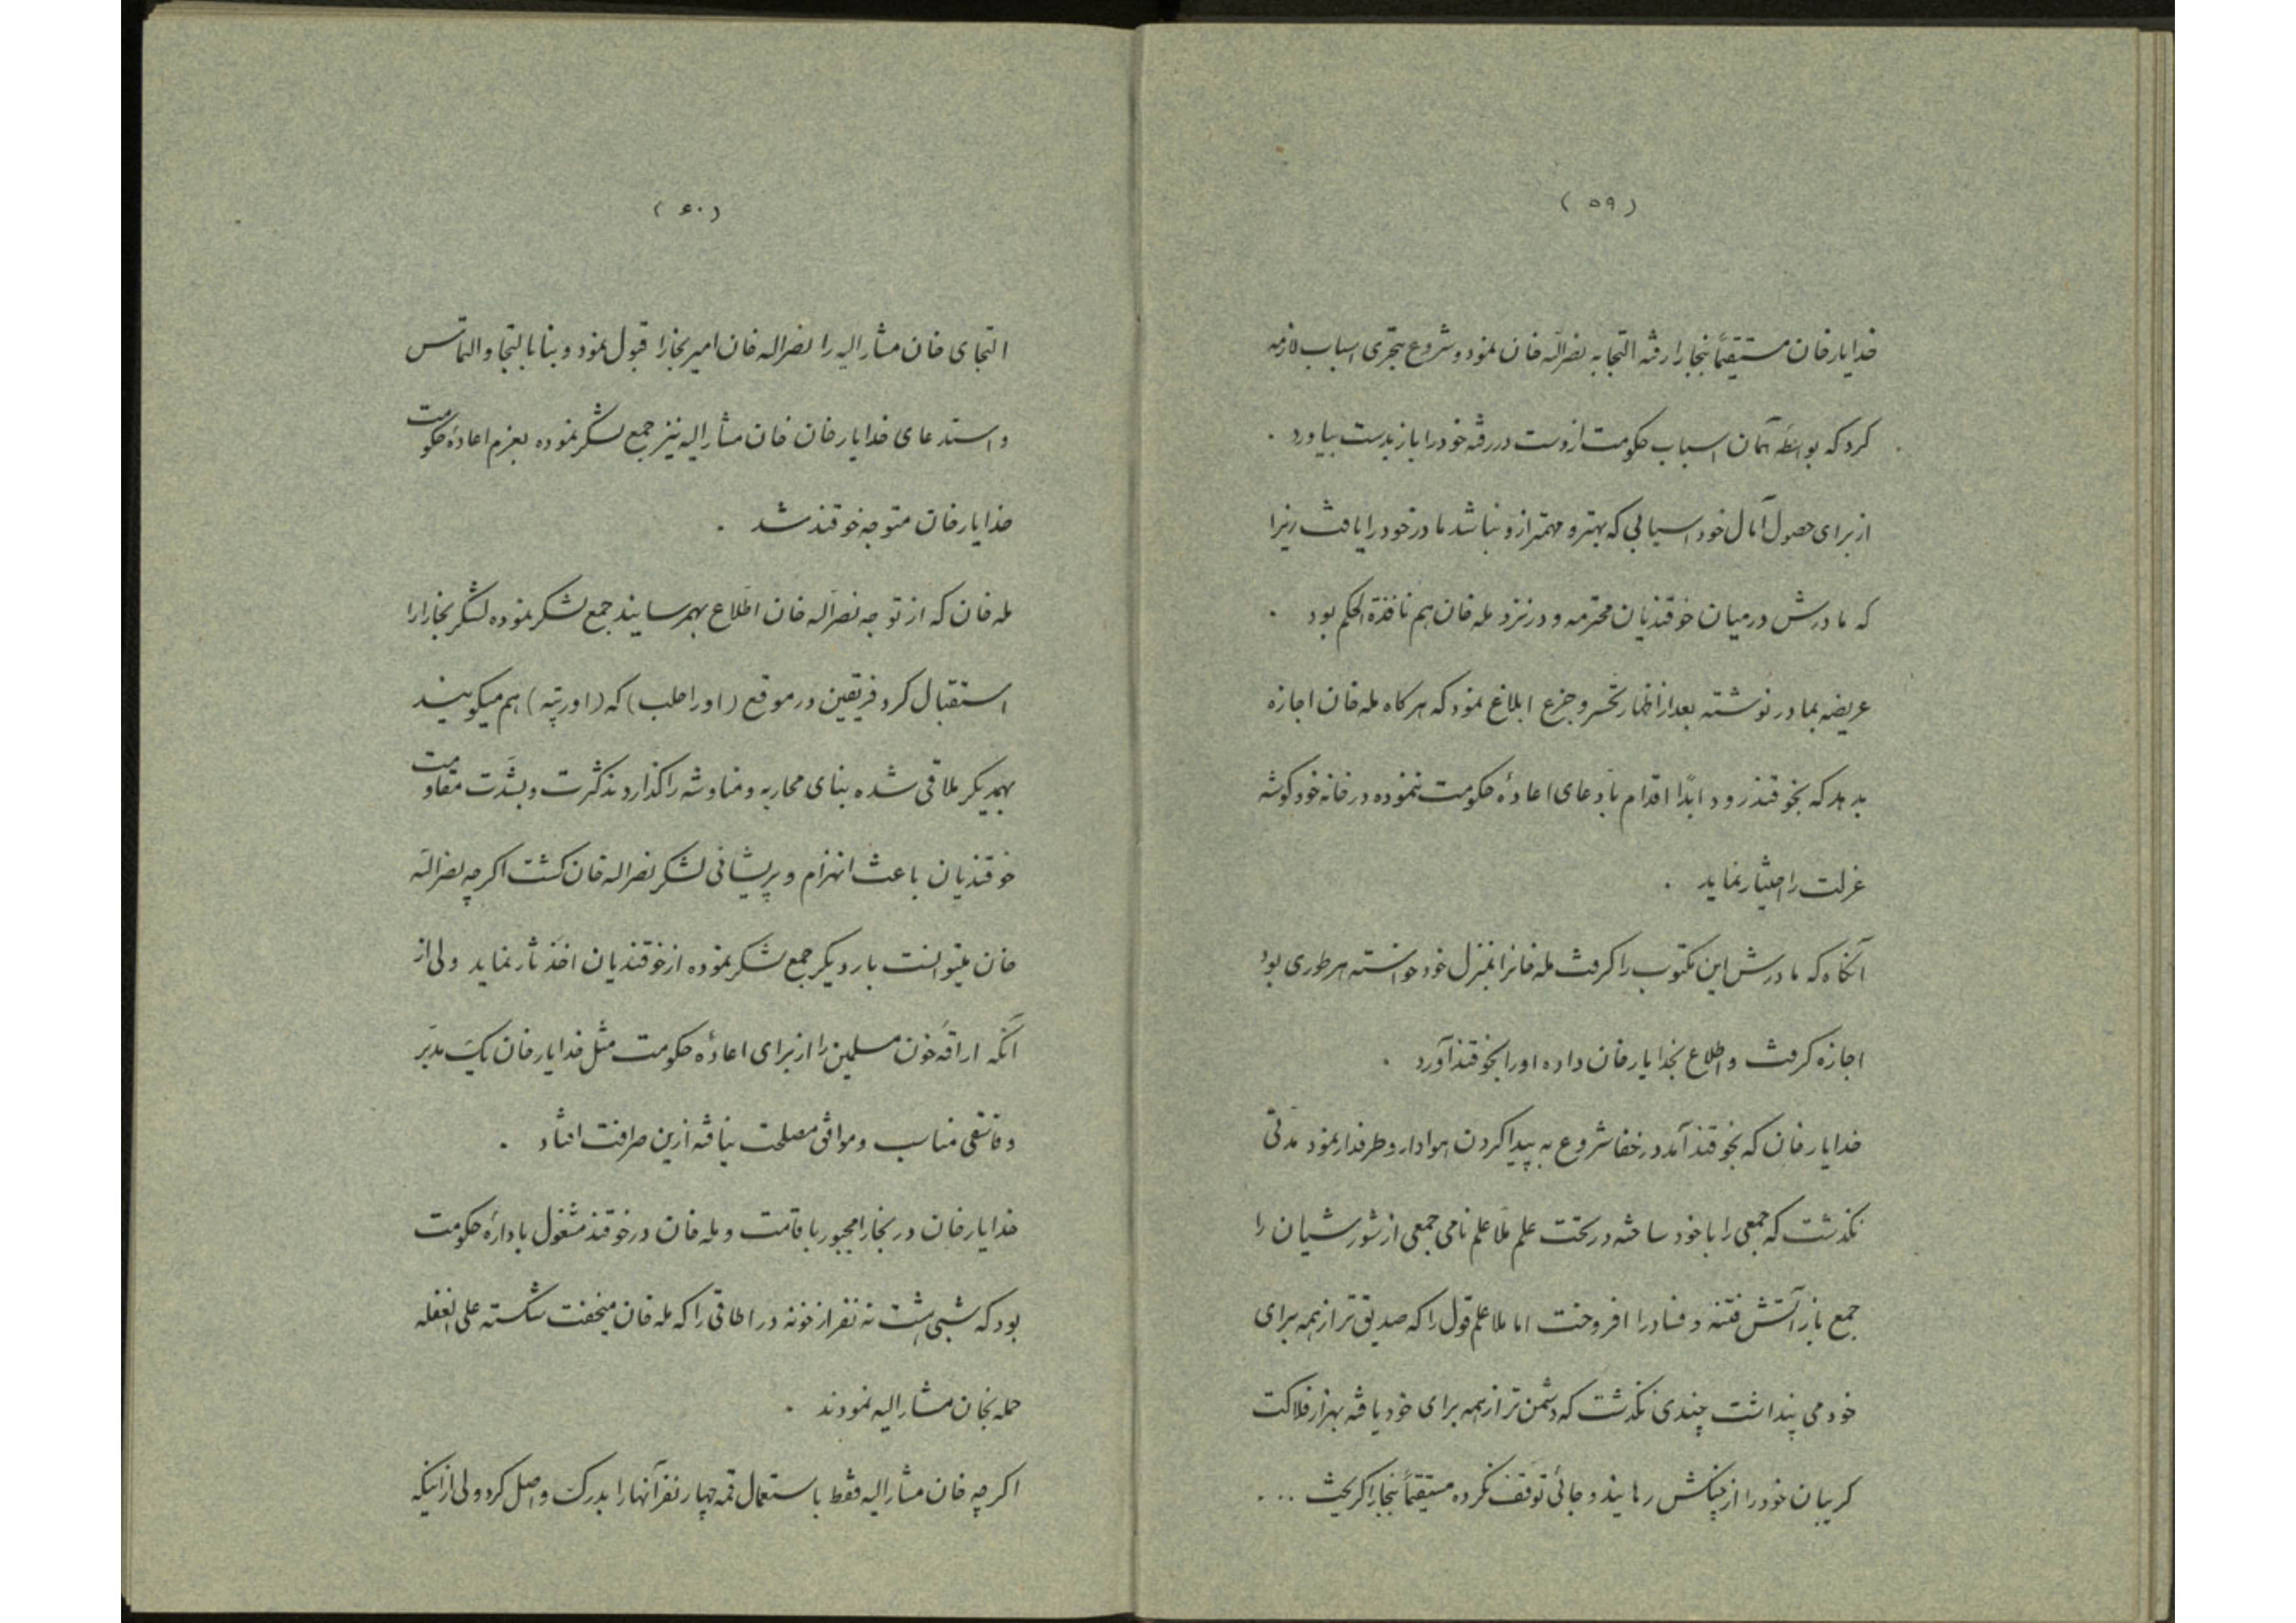 (۵۹)
خدایارخان مستقیماً ببخارا رفته التجا به نصراله خان نمود و شروع بتحری اسباب لازمه
کرد که بواسطه آمان اسباب حکومت از دست در رفته خود را باز بدست بیاورد .
از برای حصول آمال خود اسبابی که بهتر و مهمتر ازو نباشد مادر خود را یافت زیرا
که مادرش در میان خوقندیان محترمه و در نزد مله خان هم نافذة الحکم بود .
عریضه بمادر نوشته بعد از اظهار تحسر و جزع ابلاغ نمود که هرکاه مله خان اجازه
بدهد که بخوقند رود ابداً اقدام بادعای اعادهٔ حکومت ننموده در خانه خود کوشه
عزلت را اختیار نماید .
آنکاه که مادرش این مکتوب را کرفت مله خانرا بمنزل خود خواسته هر طوری بود
اجازه کرفت و اطلاع بخدایارخان داده او را بخوقند آورد .
خدایارخان که بخوقند آمد در خفا شروع به پیدا کردن هوادار و طرفدار نمود مدتی
نکذشت که جمعی را با خود ساخته در تحت علم ملا علم نامی جمعی از شورشیان را
جمع باز آتش فتنه و فساد را افروخت اما ملا علم قول را که صدیق تر از همه برای
خود می پنداشت چندی نکذشت که دشمن تر از همه برای خود یافته بهزار فلاکت
کریبان خود را از چنکش رهانید و جائی توقف نکرده مستقیماً ببخارا کریخت ...
(۶۰)
التجای خان مشارالیه را نصراله خان امیر بخارا قبول نمود و بنا بالتجا و التماس
و استدعای خدایارخان خان مشارالیه نیز جمع لشکر نموده بعزم اعادهٔ حکومت
خدایارخان متوجه خوقند شد .
مله خان که از توجه نصراله خان اطلاع بهمرسانید جمع لشکر نموده لشکر بخارا را
استقبال کرد فریقین در موقع (اورا طلب) که (اورتپه) هم میکویند
بهمدیکر ملاقی شده بنای محاربه و مناوشه را کذاردند کثرت و بشدت مقاومت
خوقندیان باعث انهزام و پریشانی لشکر نصراله خان کشت اکرچه نصراله
خان میتوانست بار دیکر جمع لشکر نموده از خوقندیان اخذ ثار نماید ولی از
آنکه اراقه خون مسلمین را از برای اعادهٔ حکومت مثل خدایارخان یک مدبر
و منافقی مناسب و موافق مصلحت نیافته ازین صرافت افتاد .
خدایارخان در بخارا مجبور باقامت و مله خان در خوقند مشغول بادارهٔ حکومت
بود که شبی هشت نه نفر از خونه در اطاقی را که مله خان میخفت شکسته علی الغفله
حمله بخان مشارالیه نمودند .
اکرچه خان مشارالیه فقط باستعمال قمه چهار نفر آنها را بدرک واصل کرد ولی از اینکه